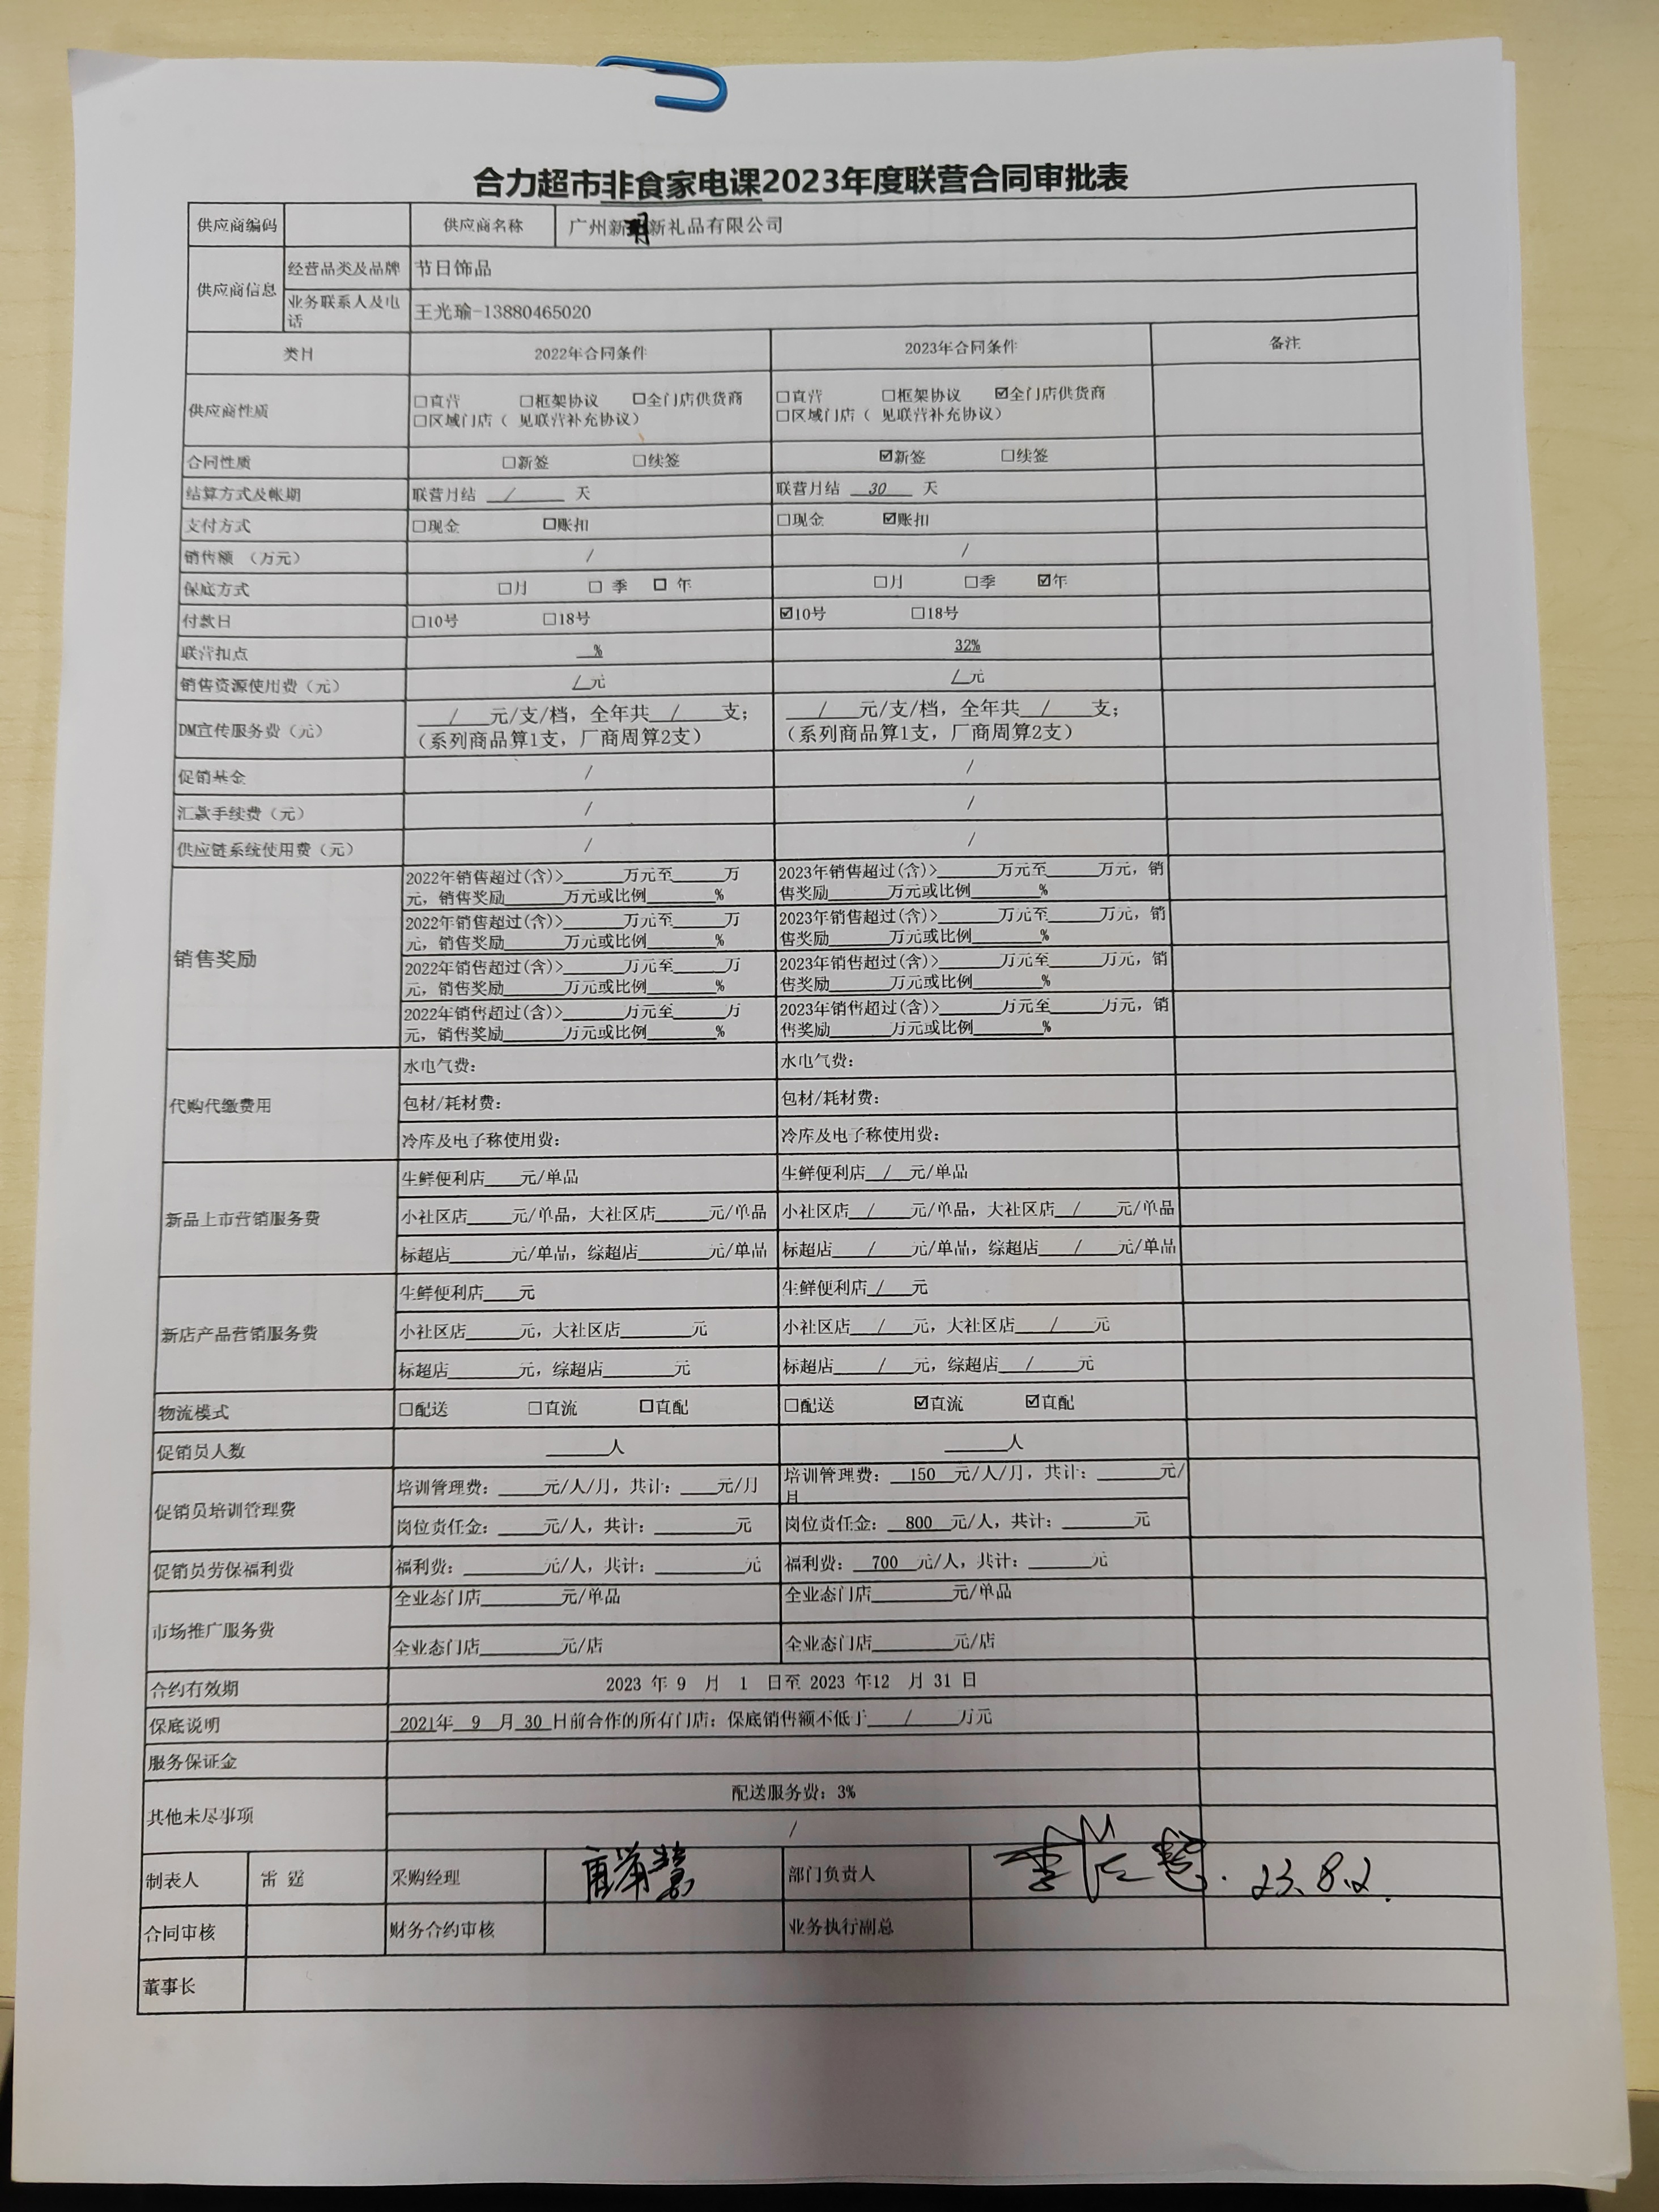 合力超市非食家电课2023年度联营合同审批表
供应商编码 供应商名称 广州新明新礼品有限公司
供应商信息 经营品类及品牌 节日饰品
业务联系人及电话 王光瑜-13880465020
类目 2022年合同条件 2023年合同条件 备注
供应商性质 □直营 □框架协议 □全门店供货商 □直营 □框架协议 ☑全门店供货商
□区域门店（ 见联营补充协议） □区域门店（ 见联营补充协议）
合同性质 □新签 □续签 ☑新签 □续签
结算方式及帐期 联营月结 / 天 联营月结 30 天
支付方式 □现金 □账扣 □现金 ☑账扣
销售额（万元） / /
保底方式 □月 □ 季 □ 年 □月 □季 ☑年
付款日 □10号 □18号 ☑10号 □18号
联营扣点 % 32%
销售资源使用费（元） /元 /元
DM宣传服务费（元） / 元/支/档，全年共 / 支； / 元/支/档，全年共 / 支；
（系列商品算1支，厂商周算2支） （系列商品算1支，厂商周算2支）
促销基金 / /
汇款手续费（元） / /
供应链系统使用费（元） / /
销售奖励
2022年销售超过(含)>______万元至_____万 2023年销售超过(含)>______万元至_____万元，销
元，销售奖励______万元或比例_______% 售奖励______万元或比例_______%
2022年销售超过(含)>______万元至_____万 2023年销售超过(含)>______万元至_____万元，销
元，销售奖励______万元或比例_______% 售奖励______万元或比例_______%
2022年销售超过(含)>______万元至_____万 2023年销售超过(含)>______万元至_____万元，销
元，销售奖励______万元或比例_______% 售奖励______万元或比例_______%
2022年销售超过(含)>______万元至_____万 2023年销售超过(含)>______万元至_____万元，销
元，销售奖励______万元或比例_______% 售奖励______万元或比例_______%
代购代缴费用 水电气费： 水电气费：
包材/耗材费： 包材/耗材费：
冷库及电子称使用费： 冷库及电子称使用费：
新品上市营销服务费 生鲜便利店___元/单品 生鲜便利店 / 元/单品
小社区店____元/单品，大社区店____元/单品 小社区店 / 元/单品，大社区店 / 元/单品
标超店_____元/单品，综超店______元/单品 标超店 / 元/单品，综超店 / 元/单品
新店产品营销服务费 生鲜便利店___元 生鲜便利店 / 元
小社区店____元，大社区店______元 小社区店 / 元，大社区店 / 元
标超店______元，综超店______元 标超店 / 元，综超店 / 元
物流模式 □配送 □直流 □直配 □配送 ☑直流 ☑直配
促销员人数 _____人 _____人
促销员培训管理费 培训管理费：____元/人/月，共计：___元/月 培训管理费： 150 元/人/月，共计：_____元/
月
岗位责任金：____元/人，共计：______元 岗位责任金： 800 元/人，共计：______元
促销员劳保福利费 福利费：______元/人，共计：______元 福利费： 700 元/人，共计：_____元
市场推广服务费 全业态门店______元/单品 全业态门店______元/单品
全业态门店______元/店 全业态门店______元/店
合约有效期 2023 年 9 月 1 日至 2023 年12 月 31 日
保底说明 2021年 9 月 30 日前合作的所有门店：保底销售额不低于 / 万元
服务保证金
其他未尽事项 配送服务费：3%
/
制表人 雷霆 采购经理 部门负责人 23.8.2.
合同审核 财务合约审核 业务执行副总
董事长